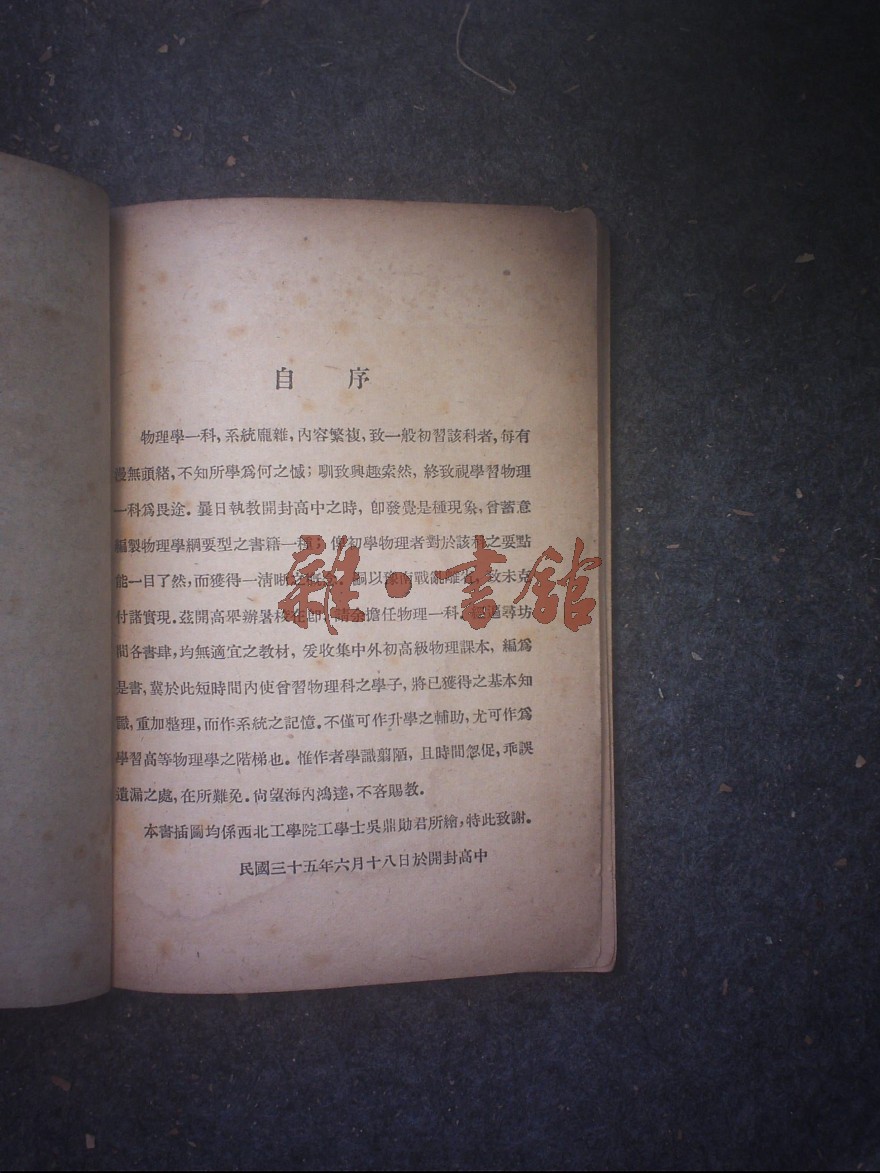 自 序
物理學一科，系統龐雜，內容繁複，致一般初習該科者，每有
無頭緒，不知所學爲何之憾；馴致興趣索然，終致視學習物理
一科爲畏途．曩日執教開封高中之時，卽發覺是種現象，曾蓄意
編製物理學綱要型之書籍一種；俾初學物理者對於該科之要點
能一目了然，而獲得一清晰之概念．嗣以豫南戰亂離，致未克
付諸實現．茲開高舉辦暑校在卽，請余擔任物理一科．遍尋坊
間各書肆，均無適宜之教材，爰收集中外初高級物理課本，編爲
是書，冀於此短時間內使曾習物理科之學子，將已獲得之基本知
識，重加整理，而作系統之記憶．不僅可作升學之輔助，尤可作爲
學習高等物理學之階梯也．惟作者學識翦陋，且時間怱促，乖誤
遺漏之處，在所難免．尙望海內鴻達，不吝賜教．
本書插圖均係西北工學院工學士吳鼎勛君所繪，特此致謝．
民國三十五年六月十八日於開封高中
雜·書館